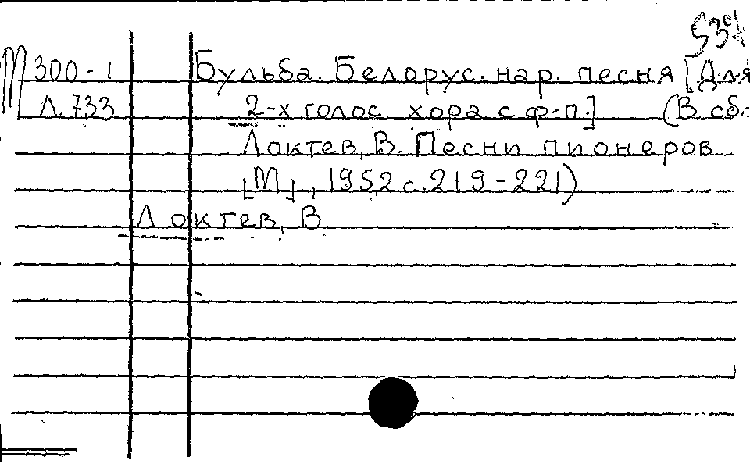 М 300-1 Бульба. Белорус. нар. песня [Для
Л. 733 2-х голос. хора с ф-п.] (В сб.:
Локтев, В. Песни пионеров
[М], 1952 с. 219-221)
Локтев, В.